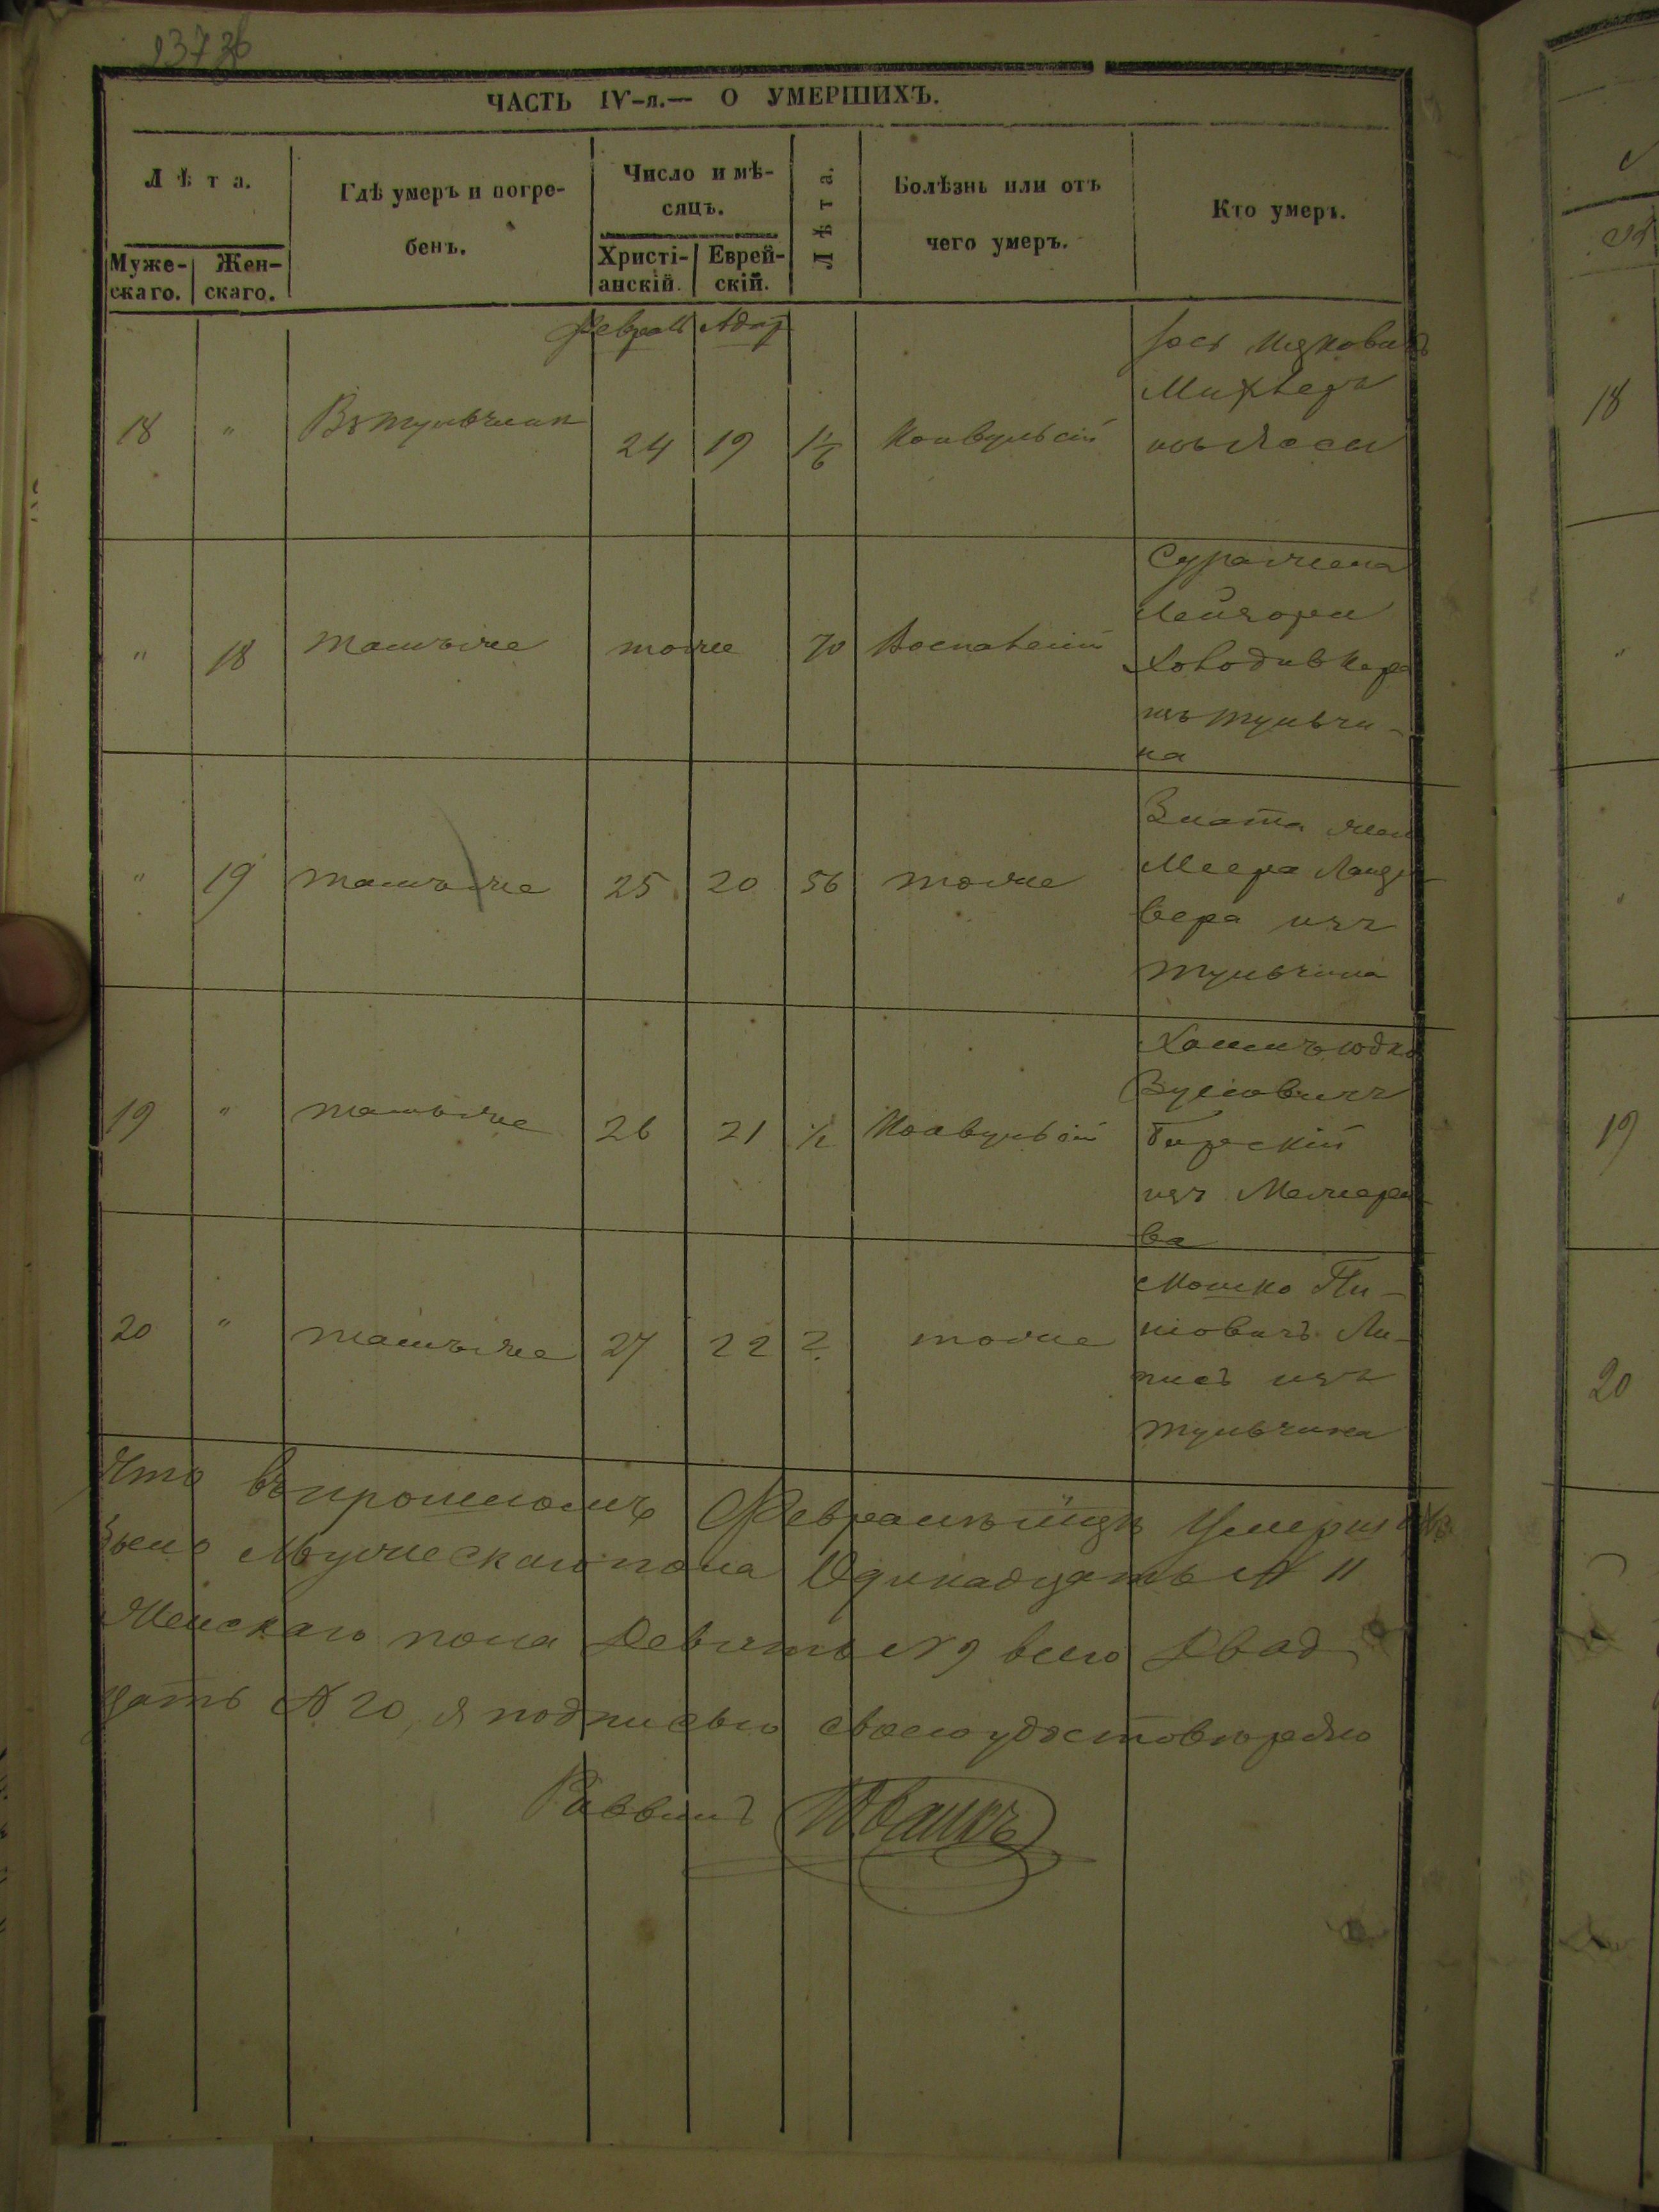 ЧАСТЬ IV-я.— О УМЕРШИХЪ.
Лѣта.
Мужескаго.
Женскаго.
Гдѣ умеръ и погребенъ.
Число и мѣсяцъ.
Христіанскій.
Еврейскій.
Лѣта.
Болѣзнь или отъ чего умеръ.
Кто умеръ.
Февраль Адар
18 " Въ Тульчинѣ 24 19 1/6 Конвульсій
Іось
изъ
" 18 тамъже тоже 70 Воспаленій
Сура жена
Лейзора
Холодивкера
изъ Тульчи-
на
" 19 тамъже 25 20 56 тоже
Злата жен
Меера Ландз
вера изъ
Тульчина
19 " тамъже 26 21 1/2 Конвульсій
Хаимъ Юдко
Зусіовичъ
изъ
ва
20 " тамъже 27 22 2 тоже
Мошко Пи-
ніовичъ Ли-
писъ изъ
Тульчина
Что въ прошломъ Февралѣ мцѣ Умерших
было Мужескаго пола Одинадцать № 11
Женскаго пола Девять № 9 всего Двад
цать № 20, я подписью своею удостовѣряю
Раввинъ
18
"
"
19
20